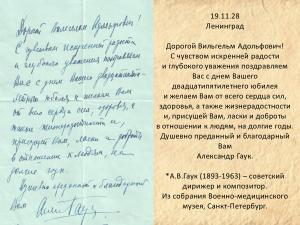 Дорогой Вильгельм Адольфович!
С чувством искренней радости
и глубокого уважения поздравляем
Вас с днем Вашего двадцатипяти-
летнего юбилея и желаем Вам
от всего сердца сил, здоровья, а
также жизнерадостности, и
присущей Вам, ласки и доброты
в отношении к людям, на
долгие годы.
Душевно преданный и благодарный
Вам
19.11.28
Ленинград
Дорогой Вильгельм Адольфович!
С чувством искренней радости
и глубокого уважения поздравляем
Вас с днем Вашего
двадцатипятилетнего юбилея
и желаем Вам от всего сердца сил,
здоровья, а также жизнерадостности
и, присущей Вам, ласки и доброты
в отношении к людям, на долгие годы.
Душевно преданный и благодарный
Вам
Александр Гаук.
*А.В.Гаук (1893-1963) – советский
дирижер и композитор.
Из собрания Военно-медицинского
музея, Санкт-Петербург.